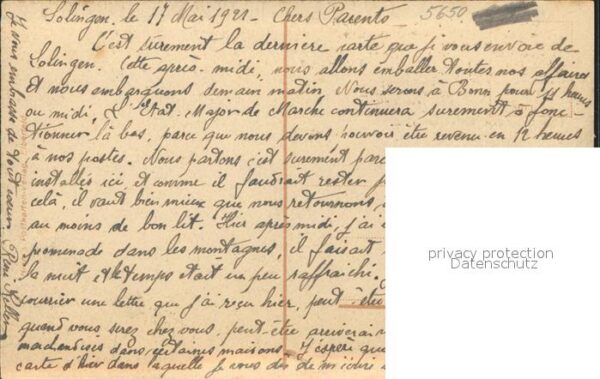 Solingen, le 17 Mai 1921 - Chers Parents
5650
C'est surement la dernière carte que je vous envoie de
Solingen. Cette après-midi, nous allons emballer toutes nos affaires
et nous embarquons demain matin. Nous serons à Bonn pour 11 heures
ou midi. L'Etat-Major de Marche continuera surement à fonc-
tionner là bas, parce que nous devons pouvoir être revenu en 12 heures
à nos postes. Nous partons c'est surement parc
installés ici, et comme il faudrait rester
celà, il vaut bien mieux que nous retournions
au moins de bon lit. Hier après midi, j'ai
promenade dans les montagnes, il faisait
la nuit et le temps était un peu raffraichi.
courrier une lettre que j'ai reçu hier, peut-être
quand vous serez chez vous, peut-être arriverai
marchandises dans certaines maisons. J'espère que
carte d'hier dans laquelle je vous dis de m'écrire
Je vous embrasse de tout coeur René Keller
privacy protection
Datenschutz